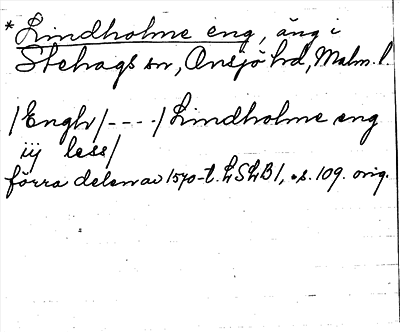 *Lindholme eng, äng i
Stehags sn, Onsjö hd, Malm. l.
/Enghr/----/ Lindholme eng
iij less/
förra delen av 1570-t. LSLB 1, s. 109. orig.